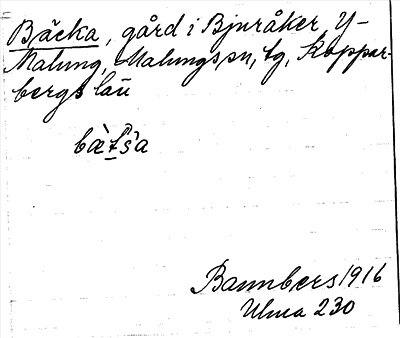 Bäcka, gård i Bjuråker, Y-
Malung, Malungs sn, tg, Koppar-
bergs län
bæ̀t̠s̀a
Bannbers 1916
Ulma 230